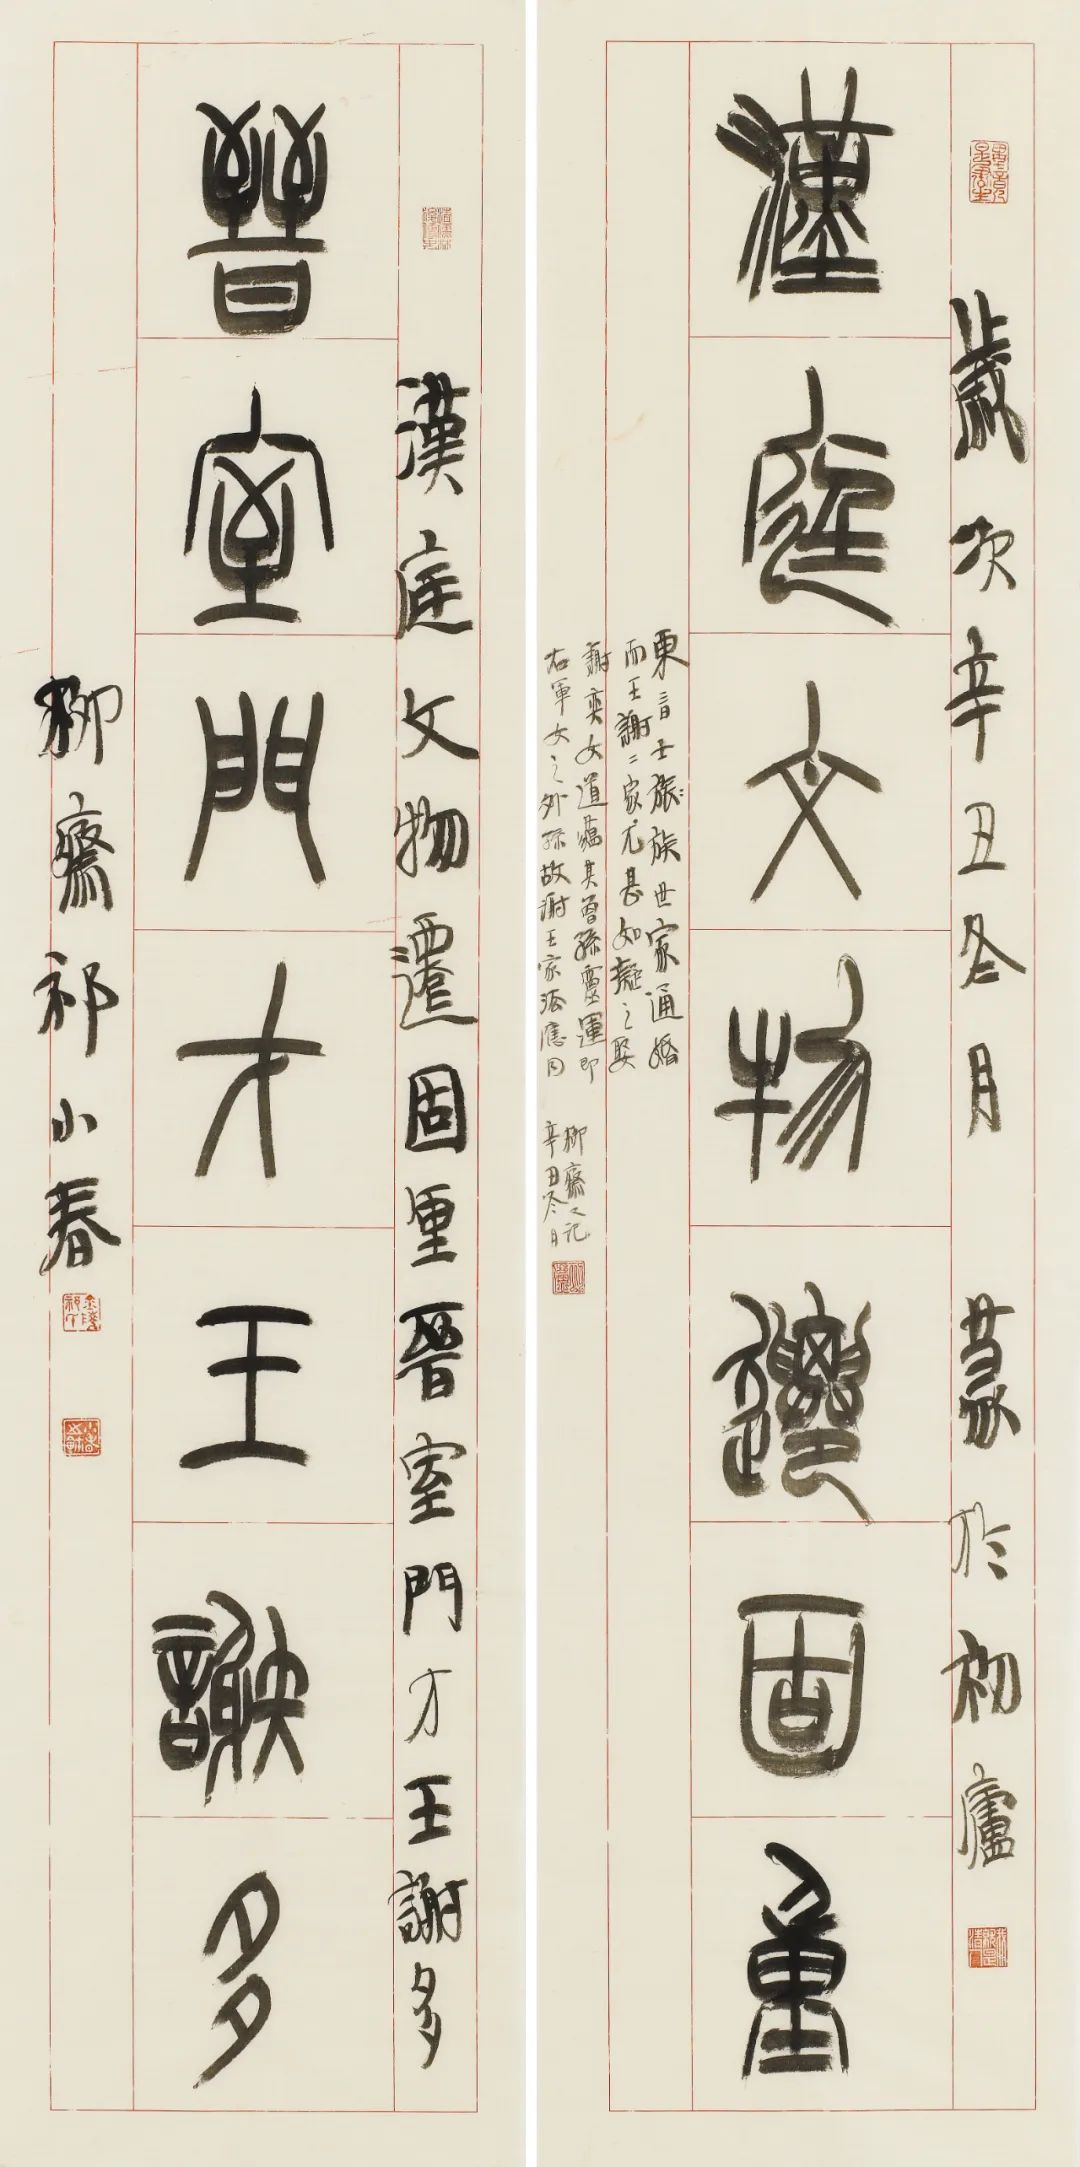 歲次辛丑冬月 篆於初廬
漢庭文物遷固重
東晉士族族世家通婚
而王謝二家尤甚如凝之娶
謝奕女道蘊其曾孫靈運即
右軍女之外孫故謝王家法應同
柳齋又記
辛丑冬月
漢庭文物遷固重晉室門才王謝多
晉室門才王謝多
柳齋祁小春